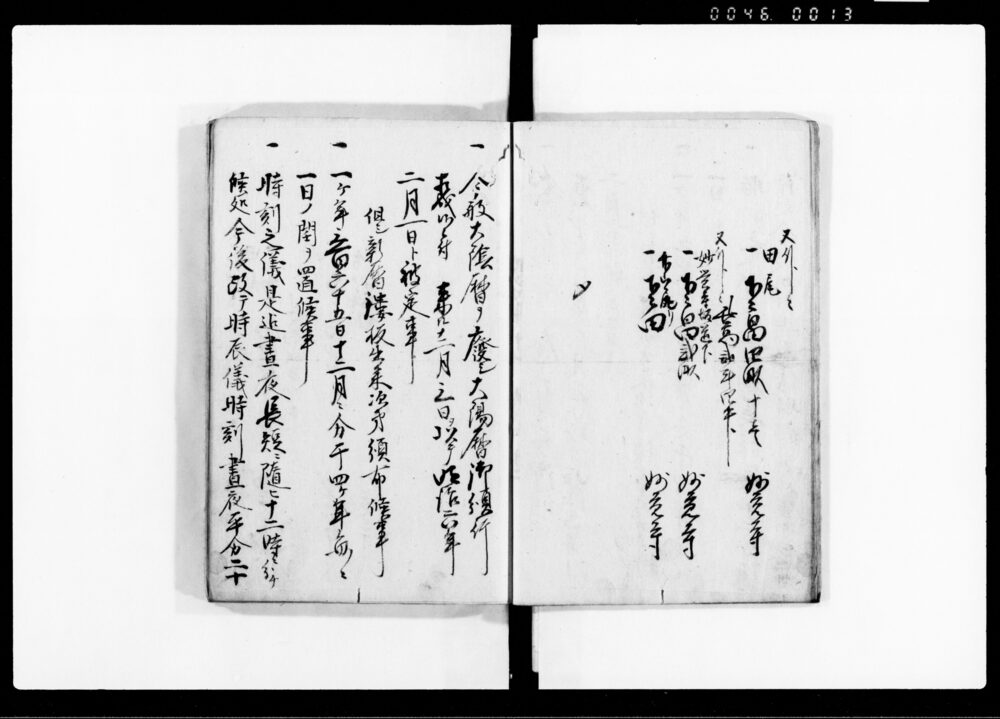 0046 0013
又外ニ
田尾
一 下々畠田畝十歩 妙覚寺
又外ニ
妙覚寺坂道下
一 下々畠田弐畝 妙覚寺
一 下々田 妙覚寺
一 今般大陰暦ヲ廃シ大陽暦御頒行
相成候ニ付 来ル十二月三日ヲ以テ明治六年
一月一日ト被定事
但新暦鏤板出来次第頒布候事
一 一ケ年三百六十五日十二月ニ分チ四ケ年毎ニ
一日ノ閏ヲ置候事
一 時刻之儀是迄昼夜長短ニ随ヒ十二時ニ分チ
候処今後改テ時辰儀時刻昼夜平分二十